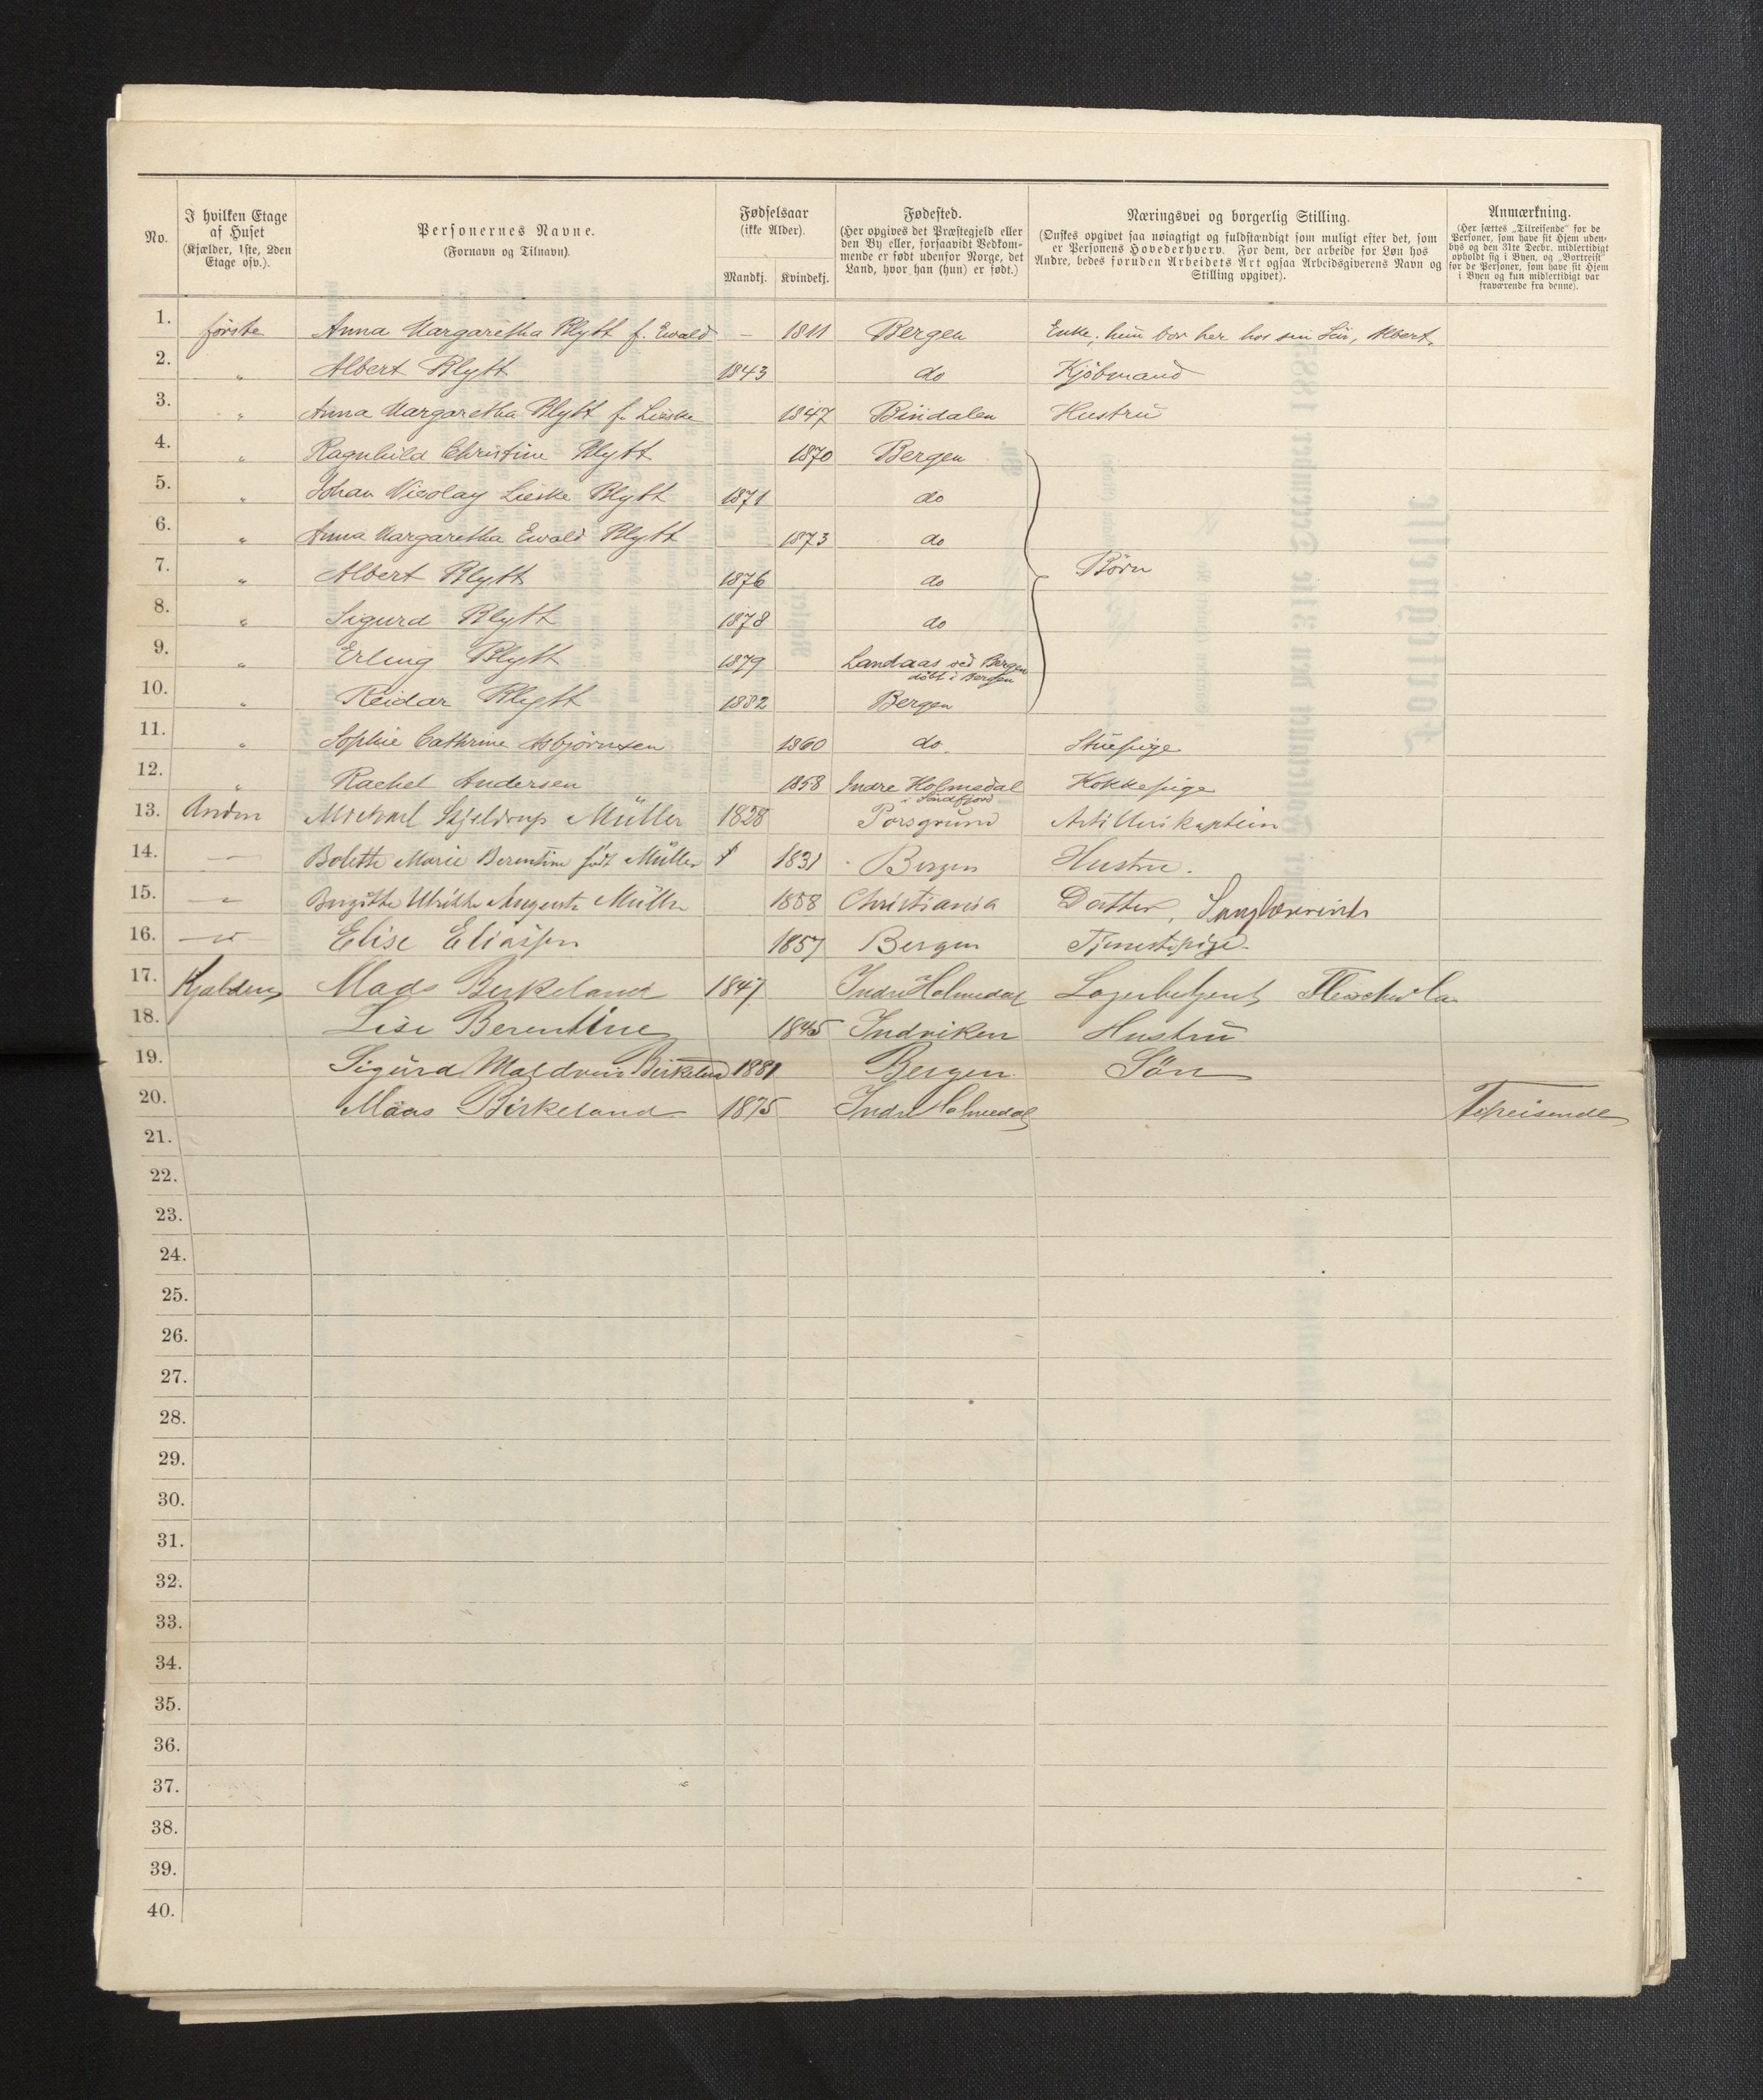 No.
I hvilken Etage af Huset (Kjælder, 1ste, 2den Etage osv.).
Personernes Navne. (Fornavn og Tilnavn).
Fødselsaar (ikke Alder). Mandkj. Kvindekj.
Fødested. (Her opgives det Præstegjeld eller den By eller, forsaavidt Vedkommende er født udenfor Norge, det Land, hvor han (hun) er født.)
Næringsvei og borgerlig Stilling. (Ønskes opgivet saa nøiagtigt og fuldstændigt som muligt efter det, som er Personens Hovederhverv. For dem, der arbeide for Løn hos Andre, bedes foruden Arbeidets Art ogsaa Arbeidsgiverens Navn og Stilling opgivet).
Anmærkning. (Her sættes „Tilreisende" for de Personer, som have sit Hjem udenbys og den 31te Decbr. midlertidigt opholdt sig i Byen, og „Bortreist" for de Personer, som have sit Hjem i Byen og kun midlertidigt var fraværende fra denne).
1. første Anna Margaretha Blytt f. Ewald – 1811 Bergen Enke, hun bor her hos sin Søn, Albert.
2. " Albert Blytt 1843 do Kjøbmand
3. " Anna Margaretha Blytt f. Lieske 1847 Bindalen Hustru
4. " Ragnhild Christine Blytt 1870 Bergen
5. " Johan Nicolay Lieske Blytt 1871 do
6. " Anna Margaretha Ewald Blytt 1873 do
7. " Albert Blytt 1876 do Børn
8. " Sigurd Blytt 1878 do
9. " Erling Blytt 1879 Landaas ved Bergen døbt i Bergen
10. " Reidar Blytt 1882 Bergen
11. " Sophie Cathrine Asbjørnsen 1860 do. Stuepige
12. " Rachel Andersen 1858 Indre Holmedal i Søndfjord Kokkepige
13. Anden Michael Skjelderup Müller 1828 Porsgrund Artillerikaptein
14. — Bolette Marie Berentine født Müller 1831 Bergen Hustru.
15. — " — Birgithe Ulrikke Augusta Müller 1858 Christiania Datter, Sanglærerinde
16. — " — Elise Eliassen 1857 Bergen Tjenestepige
17. Kjælderen Mads Birkeland 1847 Indre Holmedal Lagerbetjent
18. Lise Berentine 1845 Indviken Hustru
19. Sigurd Maldvin Birkeland 1881 Bergen Søn
20. Maas Birkeland 1875 Indre Holmedal Tilreisende
21.
22.
23.
24.
25.
26.
27.
28.
29.
30.
31.
32.
33.
34.
35.
36.
37.
38.
39.
40.